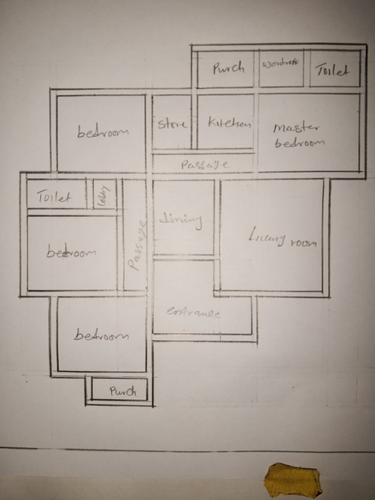 Purch
Wardrobe
Toilet
bedroom
store
Kitchen
Master
bedroom
Passage
Toilet
Passage
dining
Living room
bedroom
entrance
bedroom
Purch